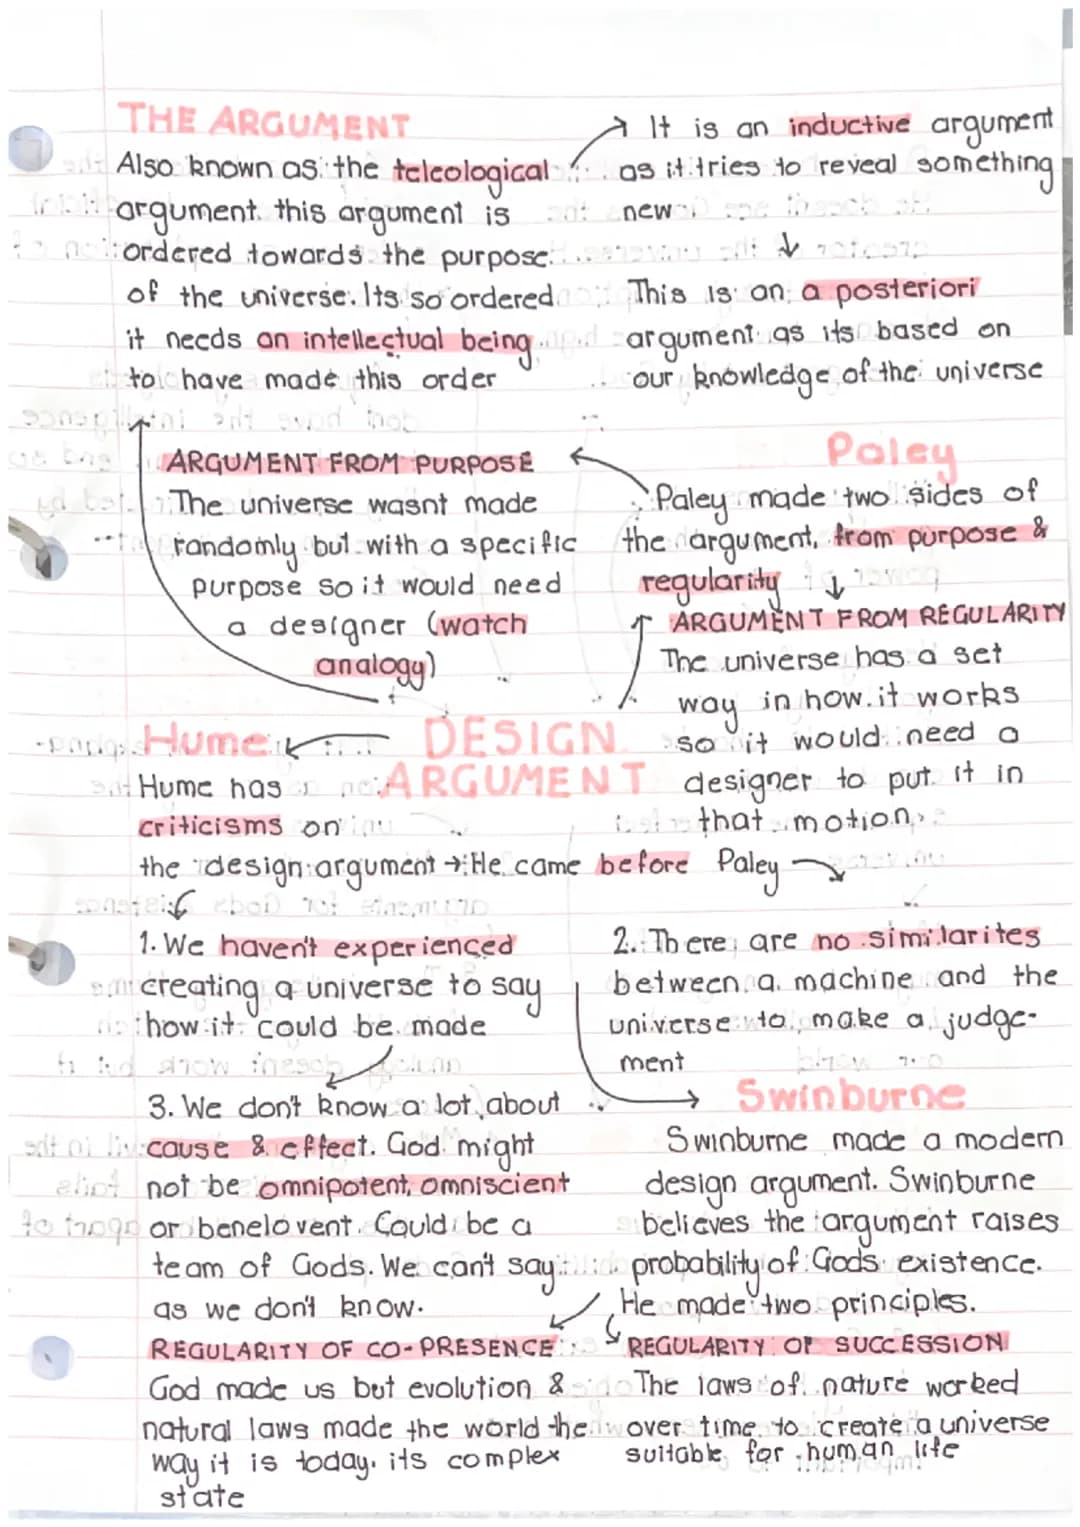 THE ARGUMENT
Also known as the teleological
argument. this argument is
ordered towards the purpose
of the universe. Its so ordered
it needs an intellectual being
to have made this order
It is an inductive argument
as it tries to reveal something
new
This is an a posteriori
argument as its based on
our knowledge of the universe
ARGUMENT FROM PURPOSE
The universe wasnt made
randomly but with a specific
purpose so it would need
a designer (watch
analogy)
Paley
Paley made two sides of
the argument, from purpose &
regularity
ARGUMENT FROM REGULARITY
The universe has a set
way in how it works
so it would need a
designer to put it in
that motion
DESIGN
ARGUMENT
Hume
Hume has
criticisms on
the design argument → He came before Paley
1. We haven't experienced
creating a universe to say
how it could be made
2. There are no similarites
between a machine and the
universe to make a judge-
ment
3. We don't know a lot about
cause & effect. God might
not be omnipotent, omniscient
or benelovent. Could be a
team of Gods. We can't say
as we don't know.
Swinburne
Swinburne made a modern
design argument. Swinburne
believes the argument raises
probability of Gods existence.
He made two principles.
REGULARITY OF CO-PRESENCE
God made us but evolution &
natural laws made the world the
way it is today, its complex
state
REGULARITY OF SUCCESSION
The laws of nature worked
over time to create a universe
suitable for human life